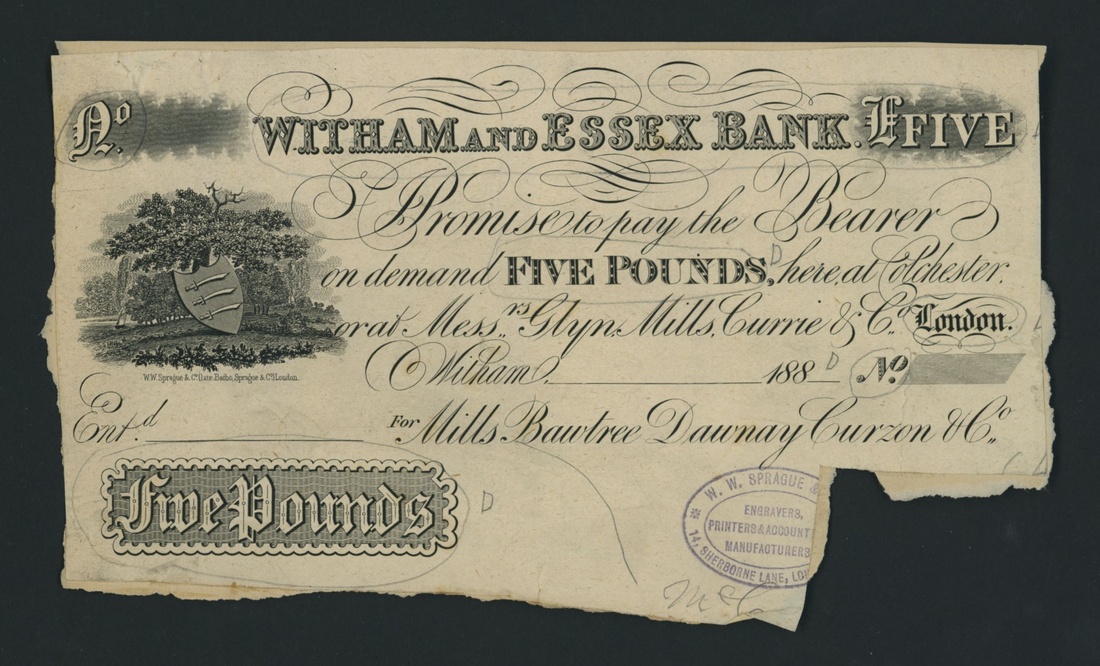 No.
WITHAM AND ESSEX BANK. £FIVE
I Promise to pay the Bearer
on demand FIVE POUNDS, here, at Colchester,
or at Messrs. Glyn, Mills, Currie & Co. London.
Witham 188 No
W.W. Sprague & Co. (late Batho, Sprague & Co.) London.
Entd. For Mills Bawtree Dawnay Curzon & Co.
Five Pounds
D
D
D
W. W. SPRAGUE &
ENGRAVERS,
PRINTERS & ACCOUNT
MANUFACTURERS
14, SHERBORNE LANE, LON